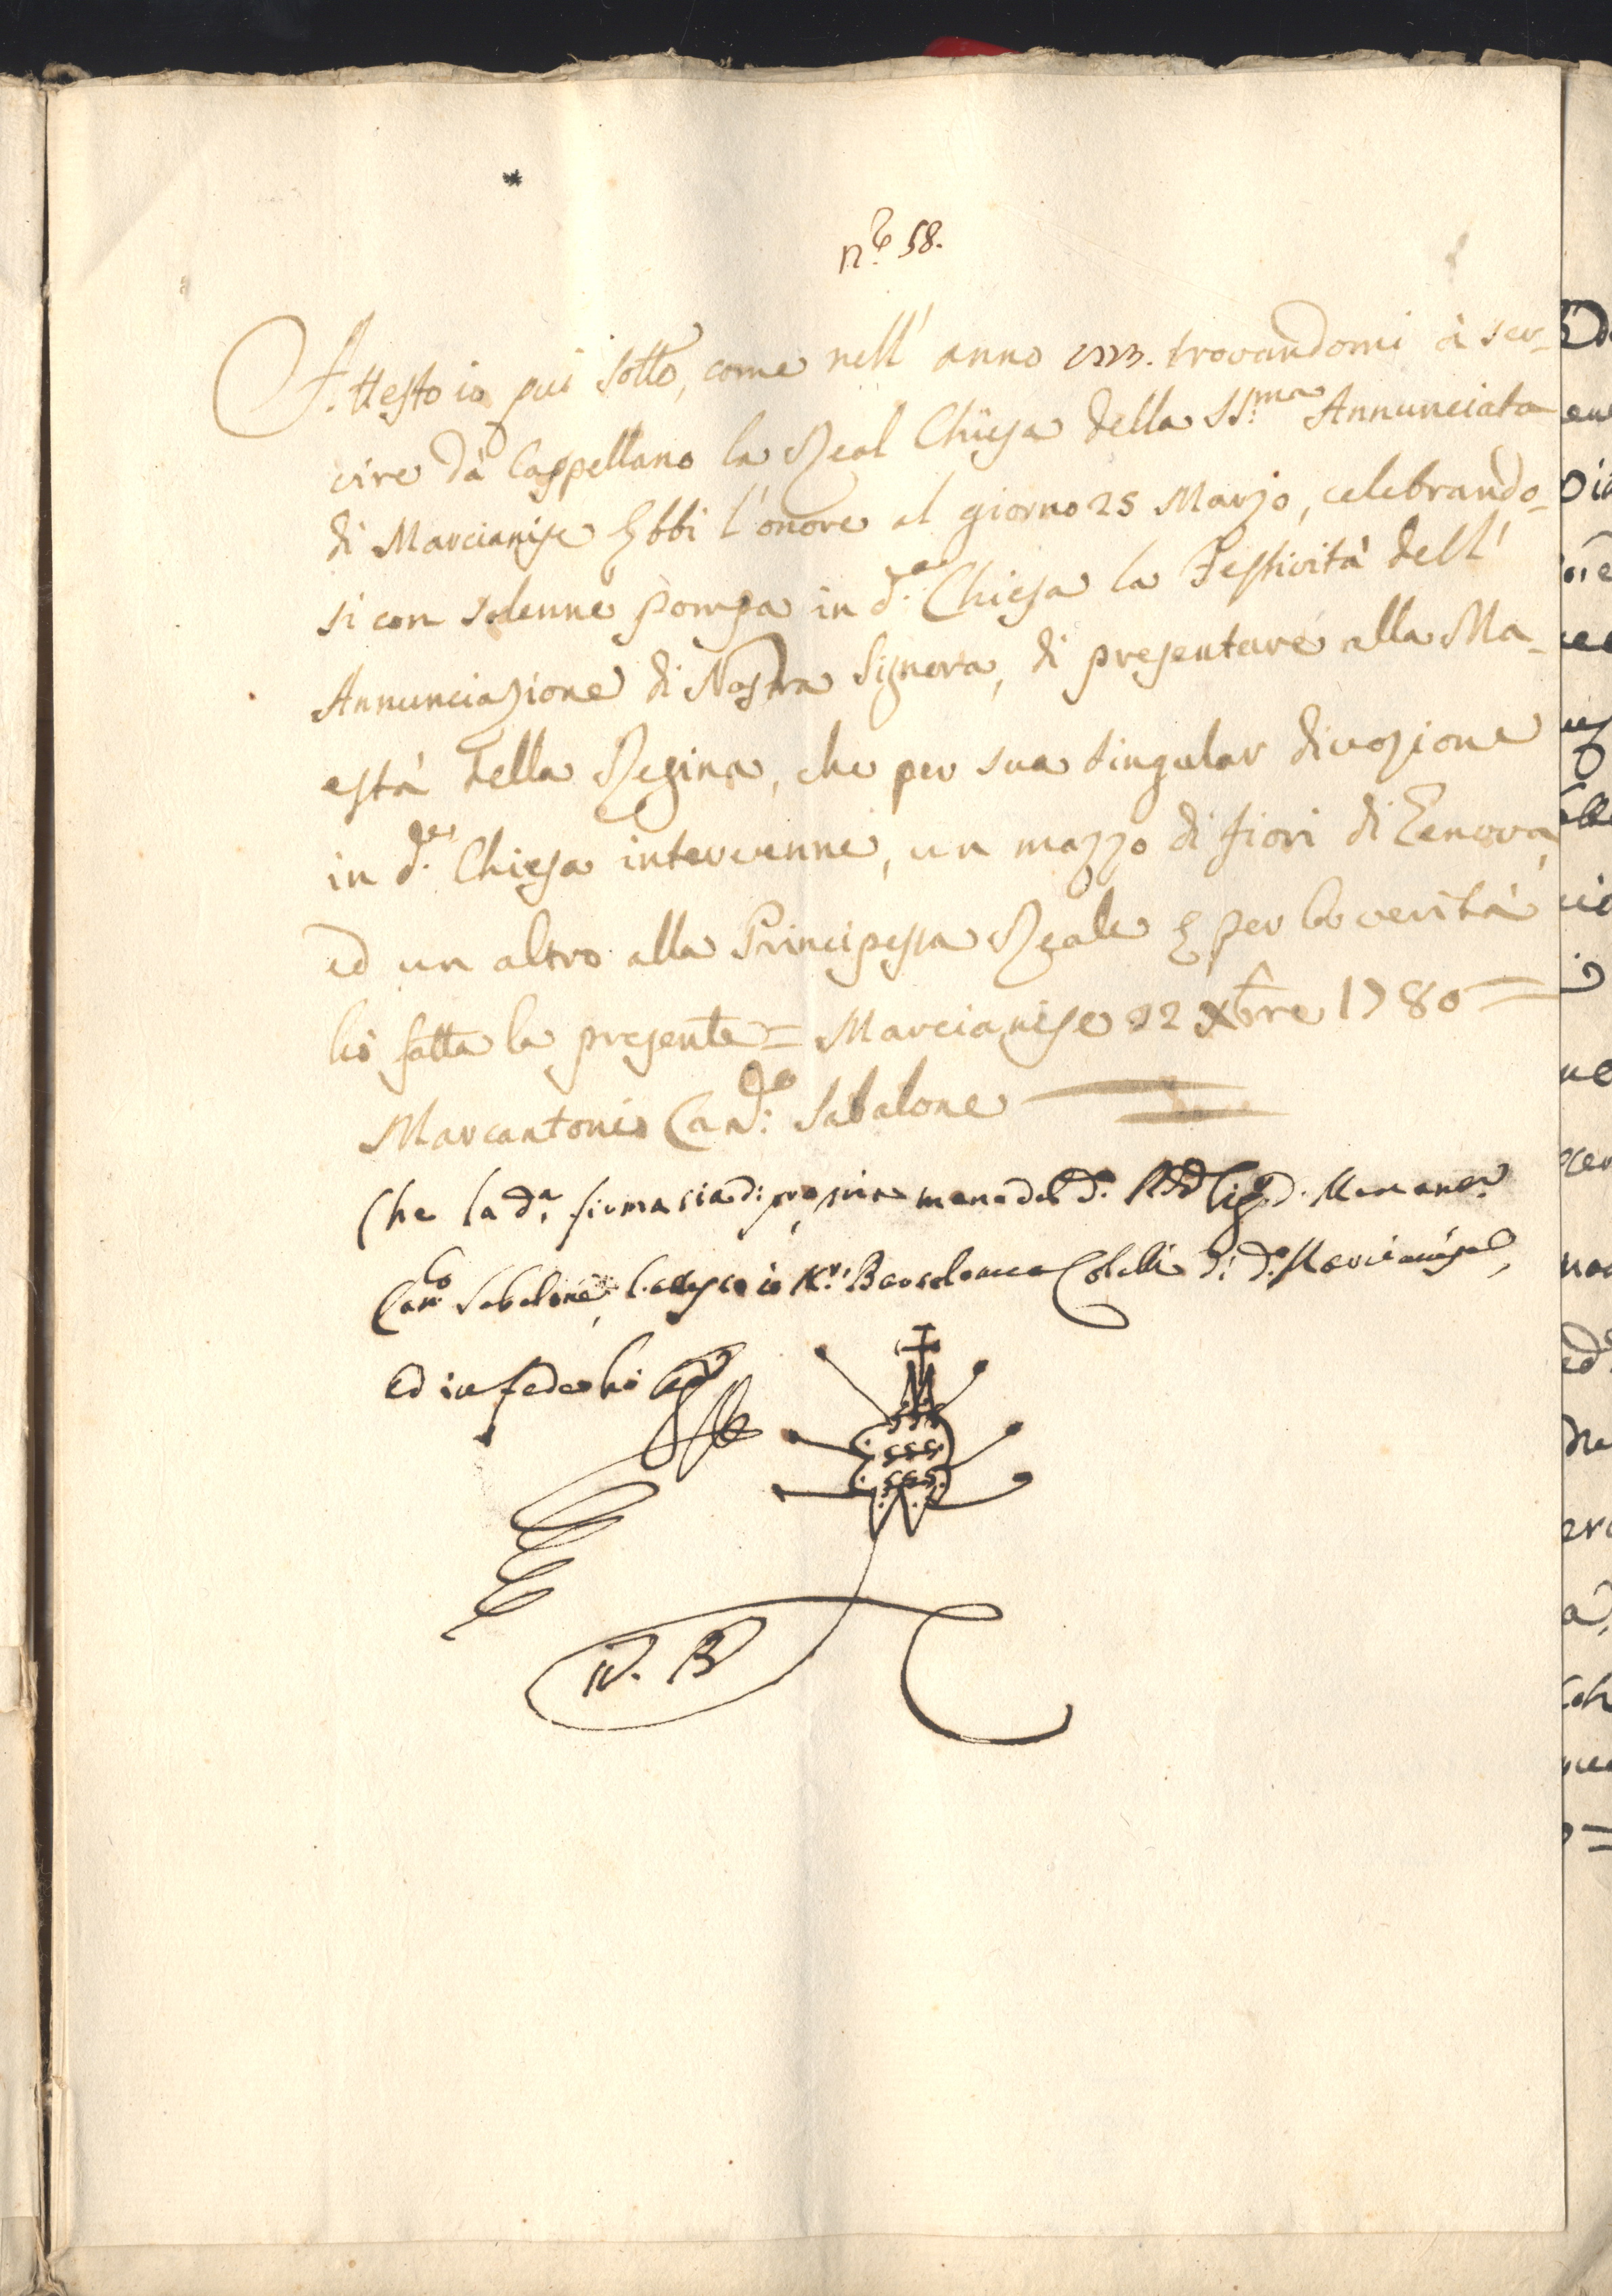 n.º 58.
Attesto io qui sotto, come nell' anno 1773. trovandomi à ser-
vire da Cappellano la Real Chiesa della SS.ma Annunciata
di Marcianise Ebbi l'onore al giorno 25 Marzo, celebrando-
si con solenne pompa in d.a Chiesa la Festività dell'
Annunciazione di Nostra Signora, di presentare alla Ma-
està della Regina, che per sua singular divozione
in d.a Chiesa intervenne, un mazzo di fiori di Genova,
ed un altro alla Principessa Reale E per la verità
hò fatta la presente = Marcianise 12 Xbre 1780 =
Marcantonio Can.co Sabalone
Che la d.a firma sia di propria mano del d.o Rdo Sig. D.
Can.co Sabalone, l'attesto io Nr. Bartolomeo di d.o Marcianise,
Ed in fede hò
SSS
SSS
N. B